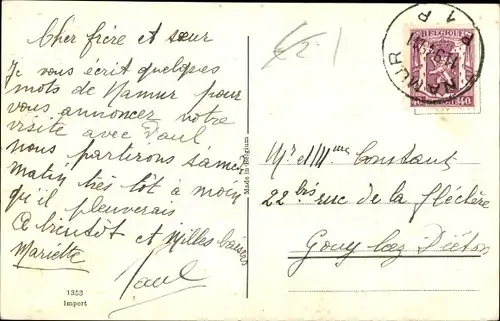 Cher frère et sœur
Je vous écrit quelques
mots de Namur pour
vous annoncer notre
visite avec Paul
nous partirons samedi
matin très tôt à moin
qu'il pleuverais
A bientôt et Milles baisers
Mariette
Paul
1353
Impert
Made in Belgium
€2.-
BELGIQUE
40 40
NAMUR
1 P
Mr et Mme Constant
22bis rue de la fléchère
Gouy lez Piéton